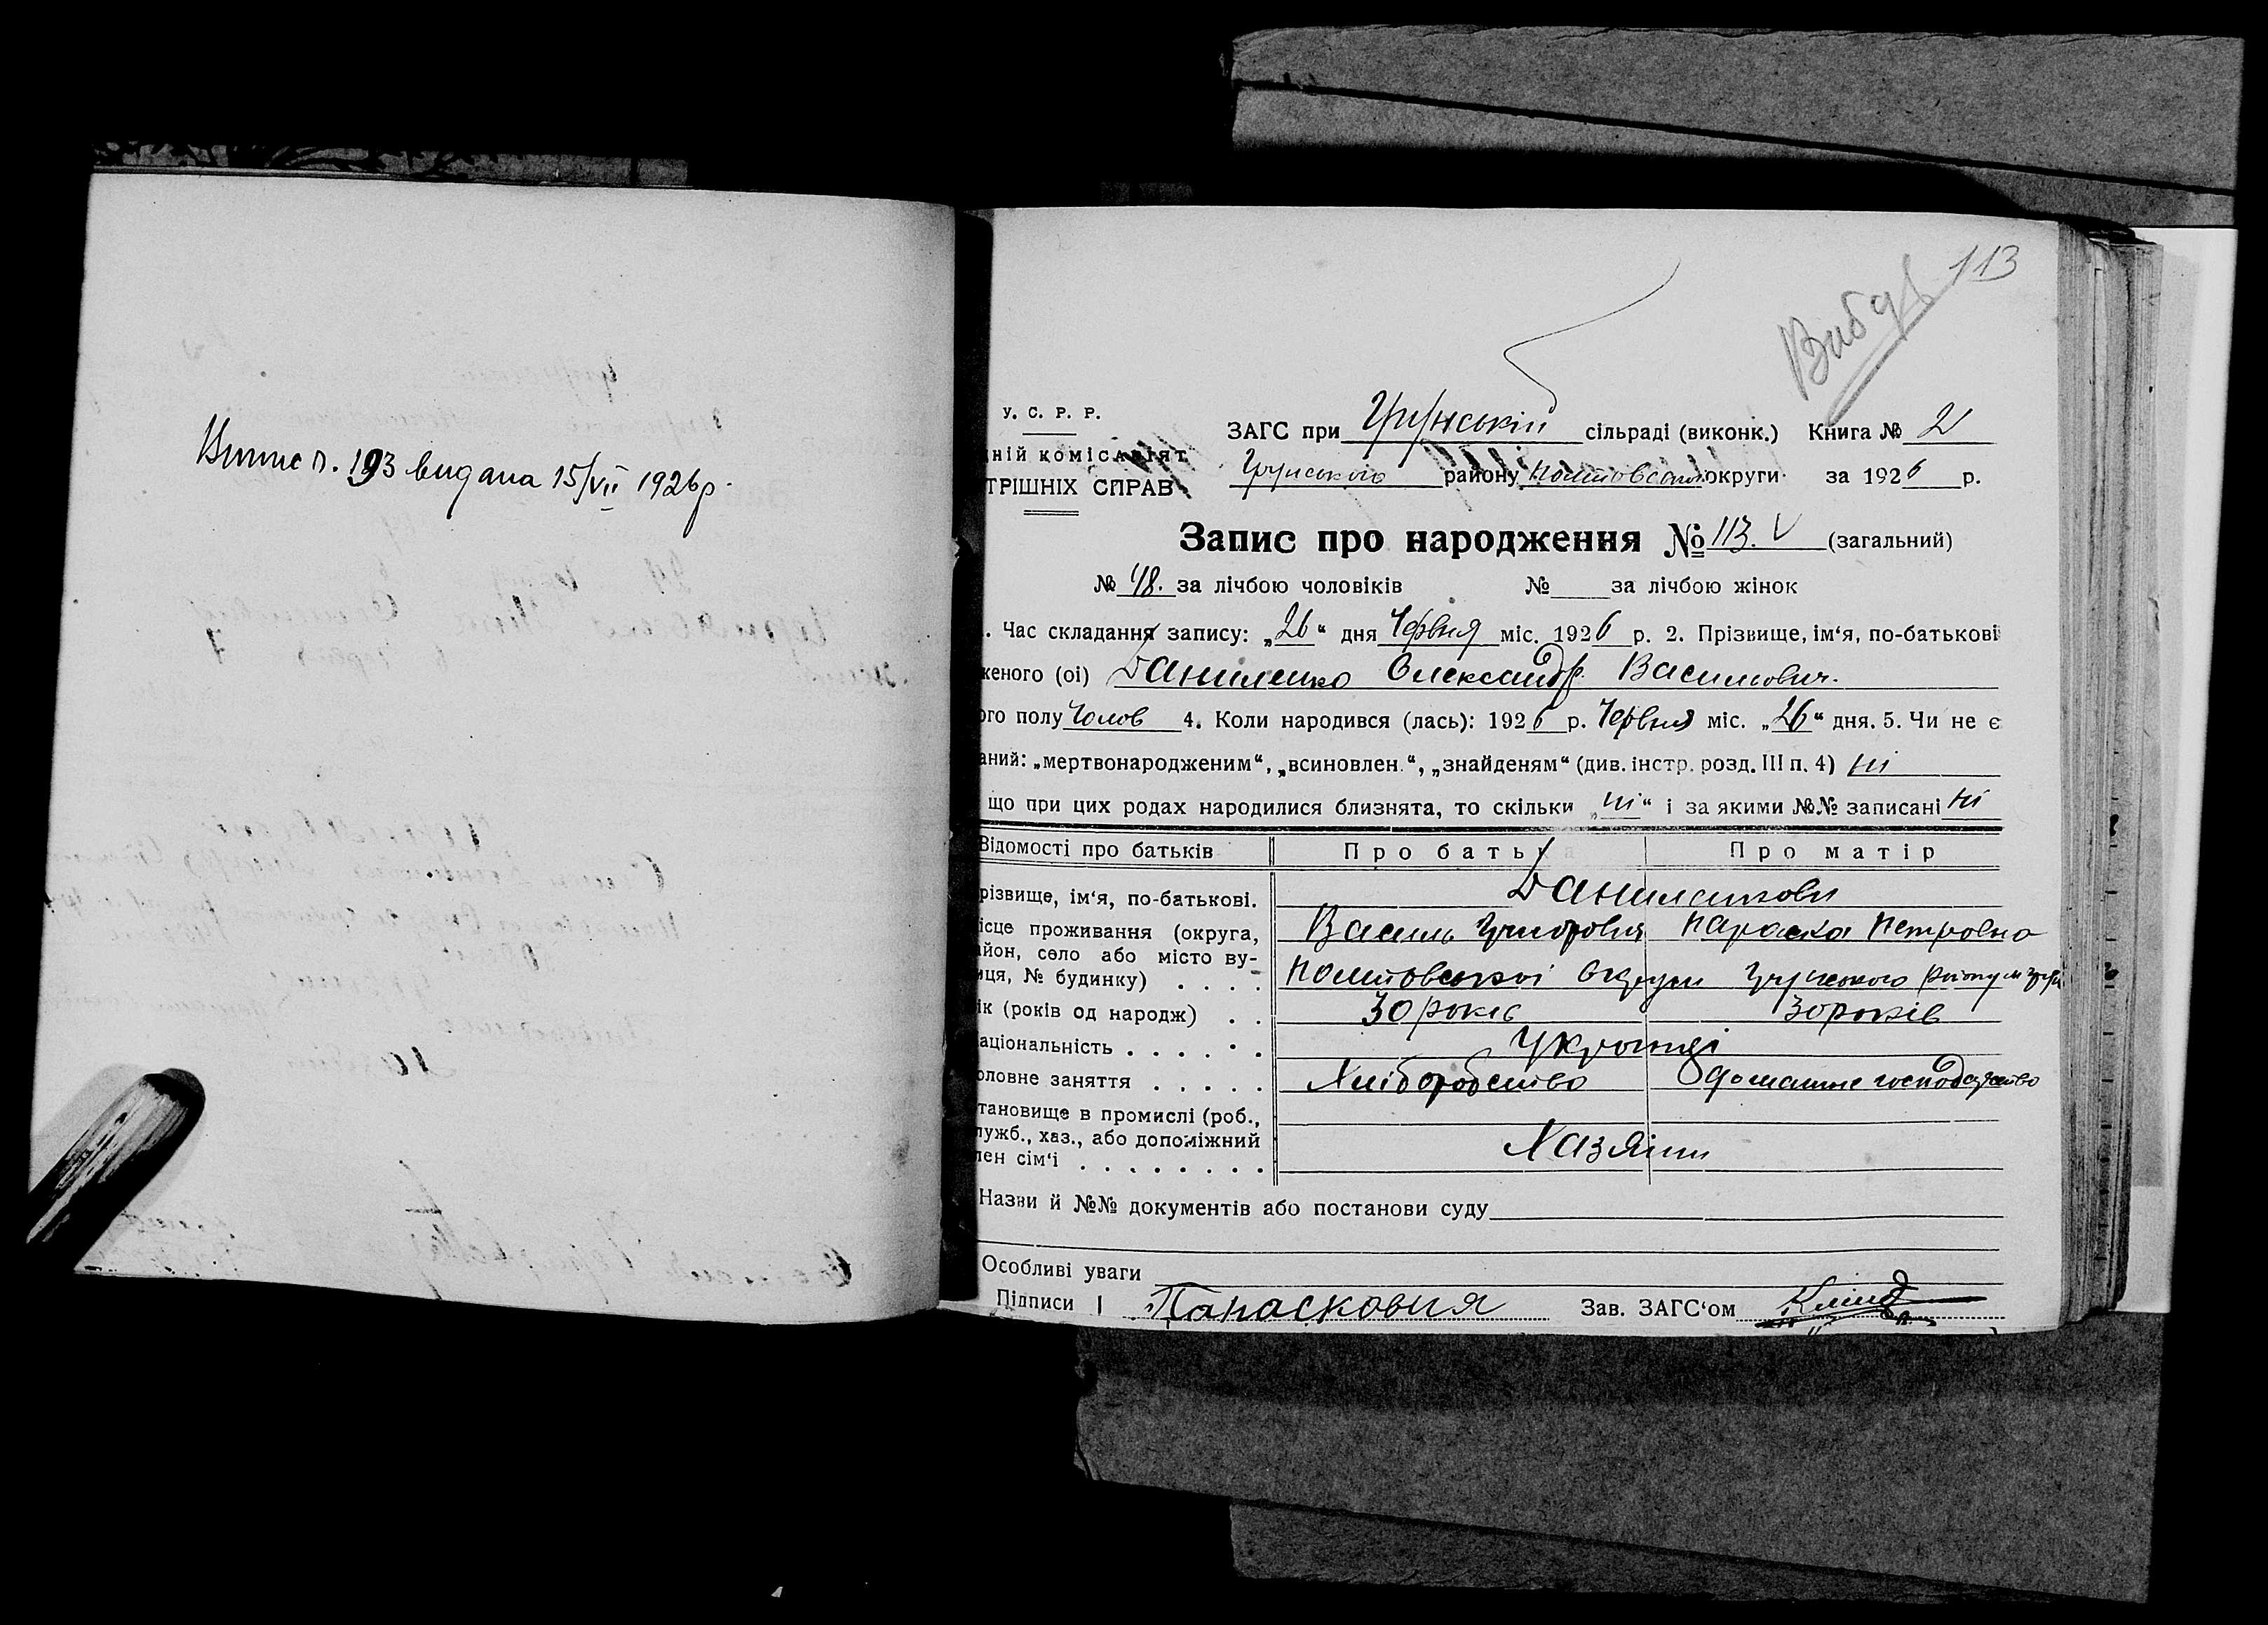 Випис п. 193 видана 15/VII 1926 р.
113
Вибув
У. С. Р. Р.
ЗАГС при Грунській сільраді (виконк.) Книга № 2
ній комісаріят
Грунського району Полтовської округи за 1926 р.
ТРІШНІХ СПРАВ
Запис про народження № 113. V (загальний)
№ 48. за лічбою чоловіків № за лічбою жінок
. Час складання запису: „26“ дня Червня міс. 1926 р. 2. Прізвище, ім‘я, по-батькові
женого (ої) Даниленко Олександр Васильович.
ого полу Чолов 4. Коли народився (лась): 1926 р. Червня міс. „26“ дня. 5. Чи не є
аний: „мертвонародженим“, „всиновлен.“, „знайденям“ (див. інстр. розд. III п. 4) ні
що при цих родах народилися близнята, то скільки „ні“ і за якими №№ записані ні
Відомості про батьків Про батька Про матір
різвище, ім‘я, по-батькові. Даниленкови
ісце проживання (округа, Василь Григорович Параска Петровна
айон, село або місто ву-
иця, № будинку) . . . . Полтовської округи Грунського району м Грунь
ік (років од народж) . . 30 років 30 років
аціональність . . . . . . Українці
оловне заняття . . . . . Хліборобство домашнє господарство
тановище в промислі (роб.,
лужб., хаз., або допоміжний Хазяїни
лен сім‘ї . . . . . . . .
Назви й №№ документів або постанови суду
Особливі уваги
Підписи 1 Парасковия Зав. ЗАГС‘ом